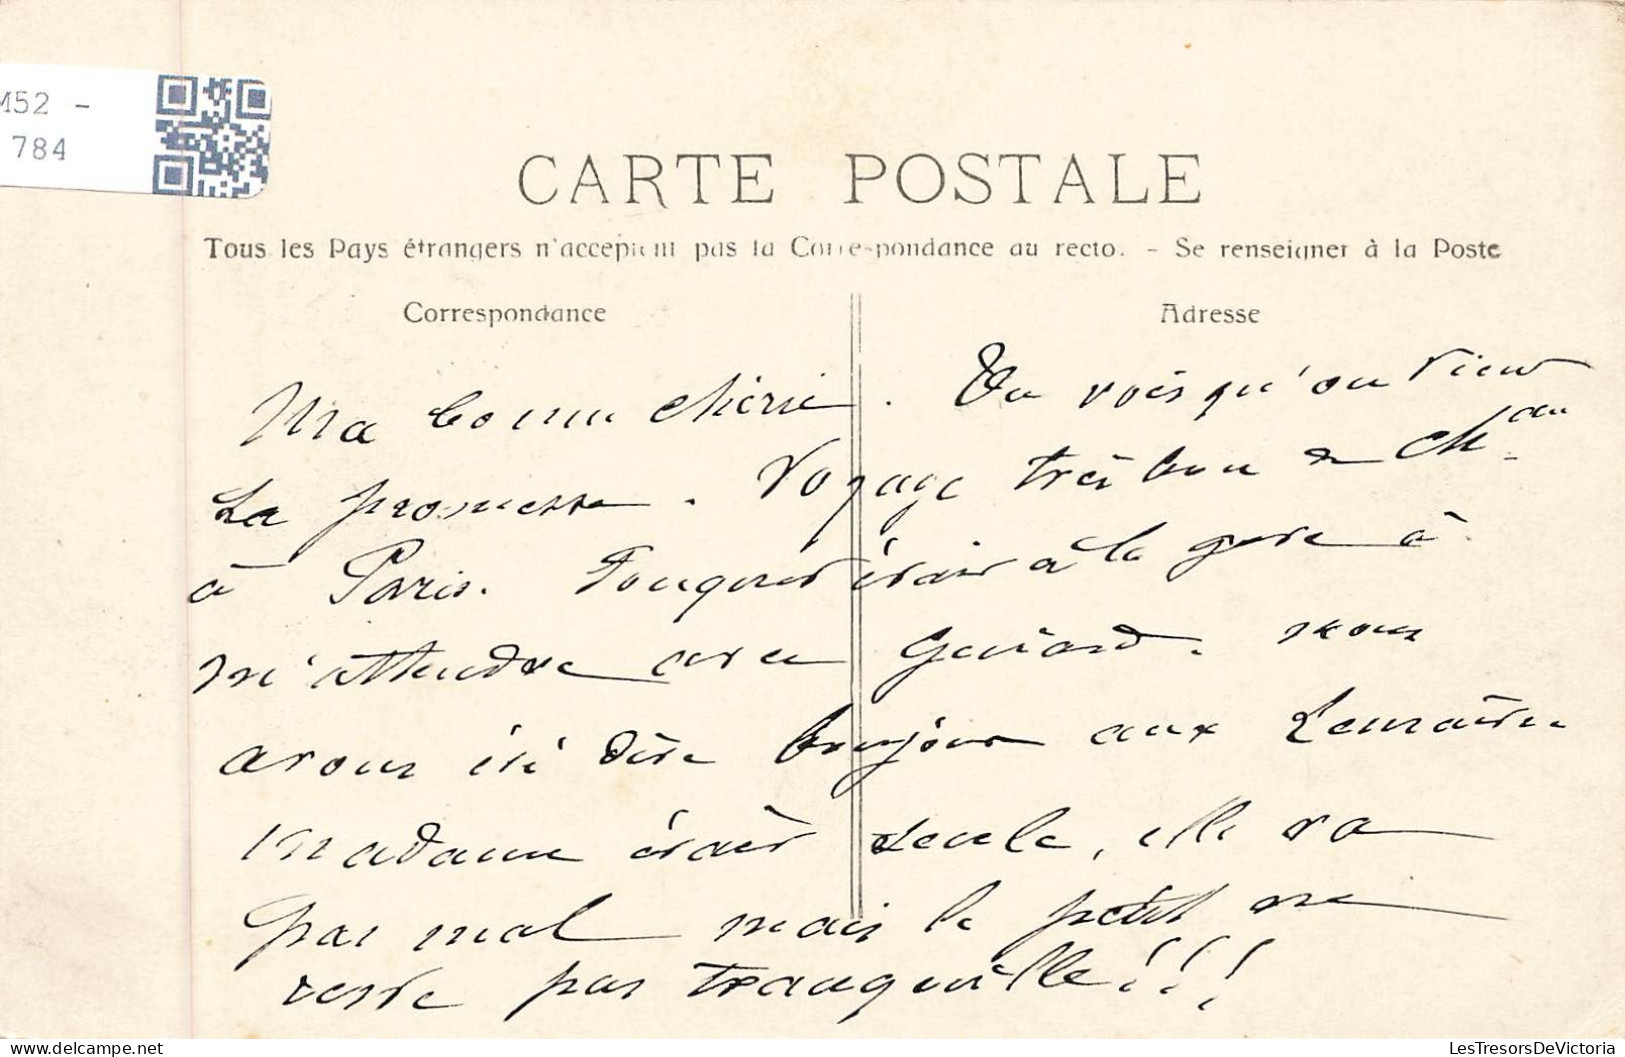 M52 -
784
CARTE POSTALE
Tous les Pays étrangers n'acceptent pas la Correspondance au recto. - Se renseigner à la Poste
Correspondance
Adresse
Ma bonne chérie. Tu vois qu'on tient
sa promesse. Voyage très bon de Ch.au
à Paris. était à la gare à
m'attendre avec Gérard. nous
avons été dire bonjour aux Lemaire
Madame était seule, elle va
pas mal mais le petit ne
reste pas tranquille!!!
LesTresorsDeVictoria
delcampe.net